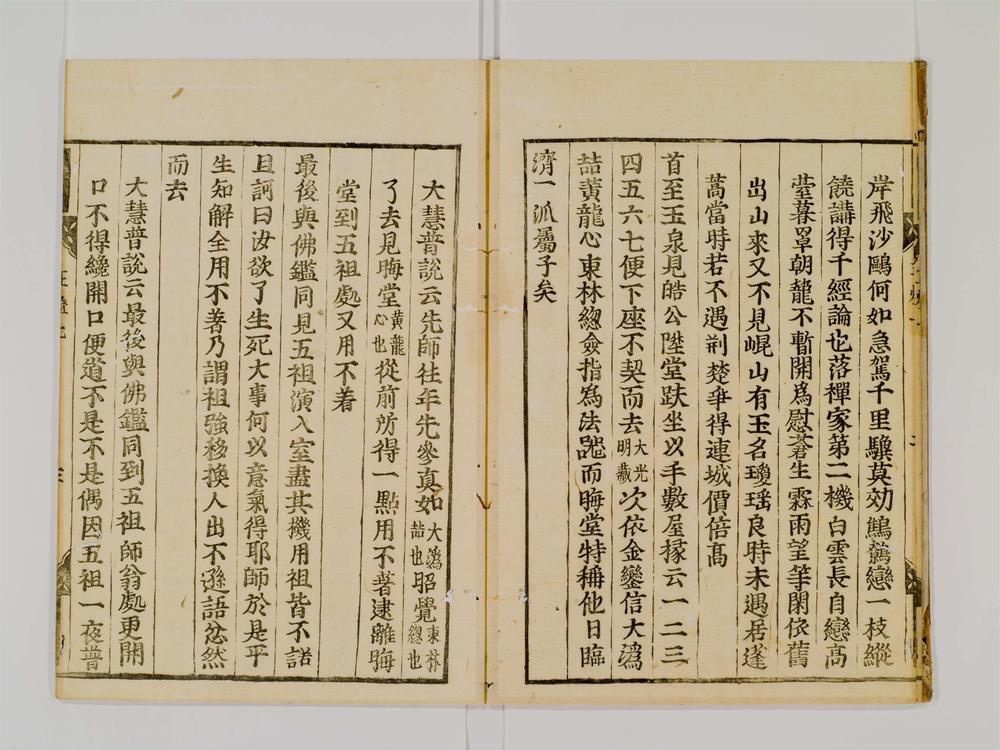 岸飛沙鷗何如急駕千里驥莫効鷦鷯戀一枝縱
饒講得千經論也落禪家第二機白雲長自戀高
臺暮罩朝籠不暫開爲慰蒼生霖雨望等閑依舊
出山來又不見崐山有玉名瓊瑶良時未遇居蓬
蒿當時若不遇荆楚爭得連城價倍高
首至玉泉見皓公陞堂趺坐以手數屋椽云一二三
四五六七便下座不契而去大光明藏次依金鑾信大潙
喆黄龍心東林緫僉指為法噐而晦堂特稱他日臨
濟一派屬子矣
大慧普說云先師往年先叅真如大潙喆也昭覺東林緫也
了去見晦堂黄龍心也從前所得一點用不著逮離晦
堂到五祖處又用不着
最後與佛鑑同見五祖演入室盡其機用祖皆不諾
且訶曰汝欲了生死大事何以意氣得耶師於是平
生知解全用不著乃謂祖強移換人出不遜語忿然
而去
大慧普說云最後與佛鑑同到五祖師翁處更開
口不得纔開口便道不是不是偶因五祖一夜普